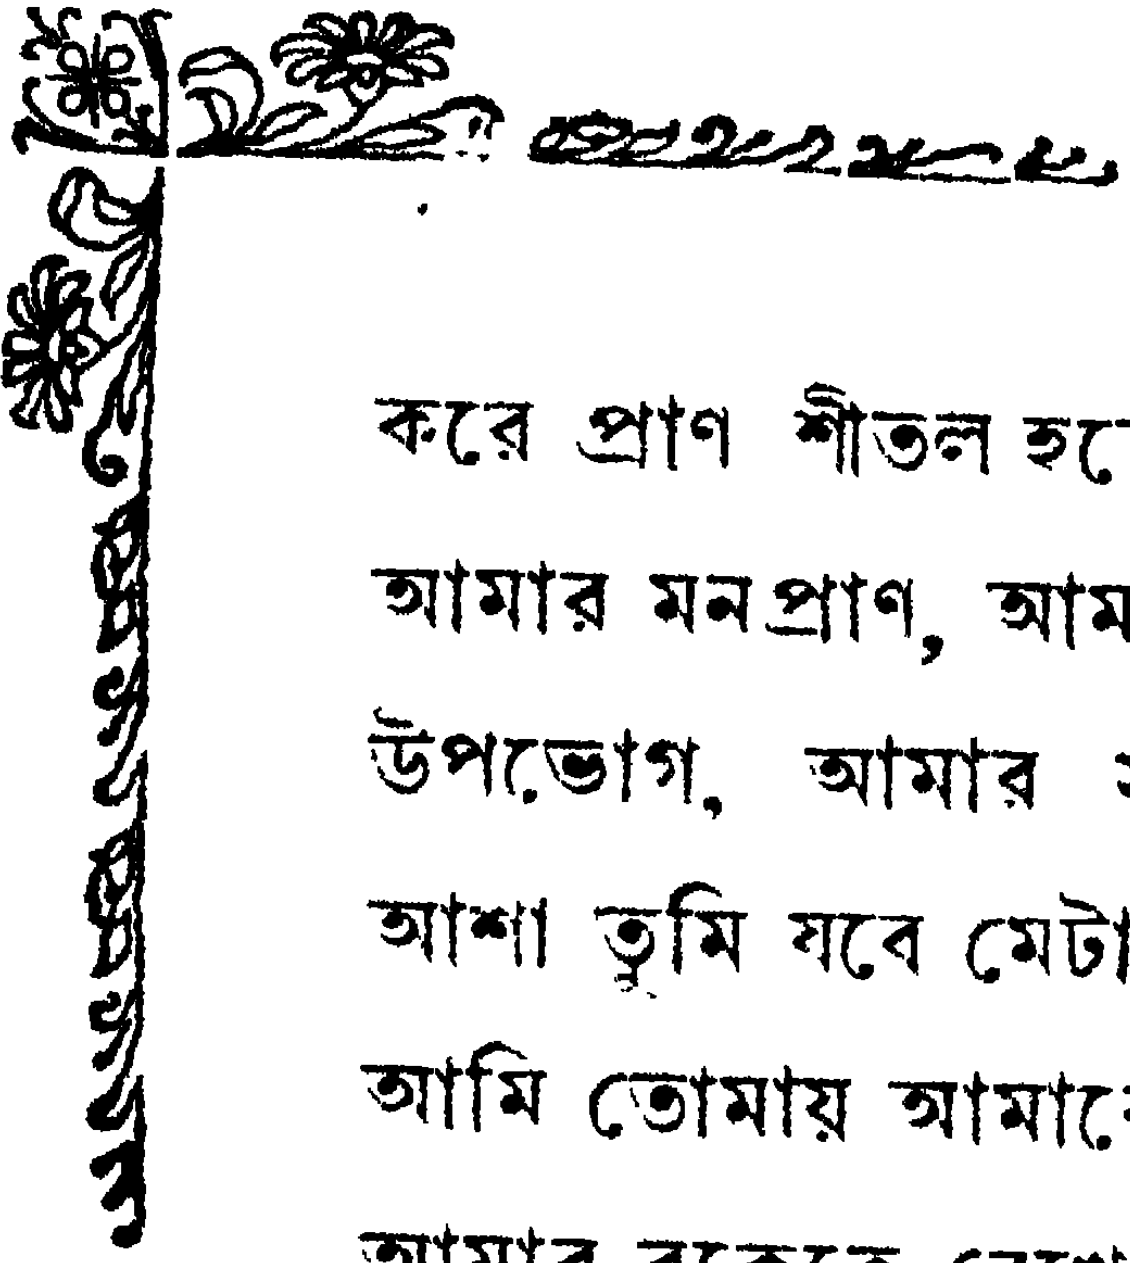 করে প্রাণ শীতল
আমার মনপ্রাণ,
উপভোগ, আমার
আশা তুমি যবে
আমি তোমায়
আমার